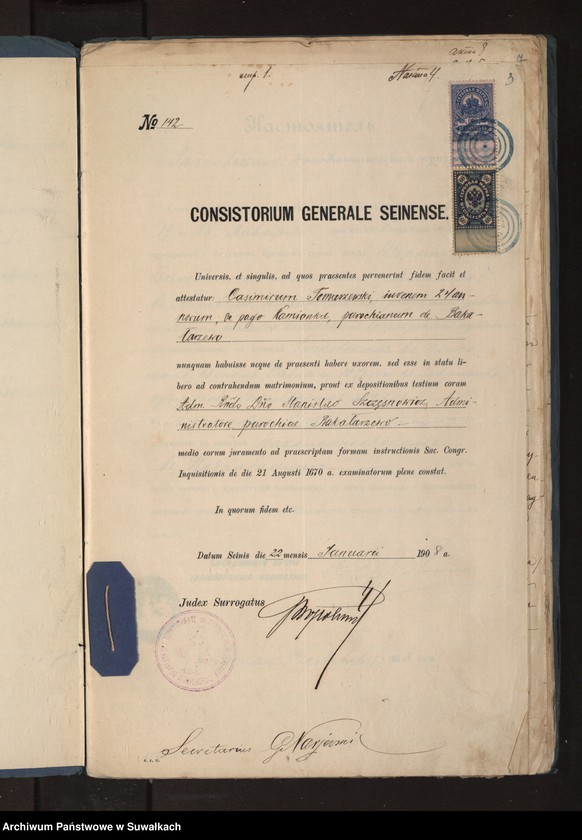 № 142
CONSISTORIUM GENERALE SEINENSE.
Universis, et singulis, ad quos praesentes pervenerint fidem facit et
attestatur: Casimirum Tomaszewski, iuvenem 24 an-
norum, de pago Kamionka, parochianum de Baka-
larzewo
nunquam habuisse neque de praesenti habere uxorem, sed esse in statu li-
bero ad contrahendum matrimonium, prout ex depositionibus testium coram
Adm. Rndo Dno Stanislao Szczęsnowicz, Admi-
nistratore parochiae Bakalarzewo
medio eorum juramento ad praescriptam formam instructionis Sac. Congr.
Inquisitionis de die 21 Augusti 1670 a. examinatorum plene constat.
In quorum fidem etc.
Datum Seinis die 22 mensis Januarii 1908 a.
Judex Surrogatus
Secretarius
Archiwum Państwowe w Suwałkach